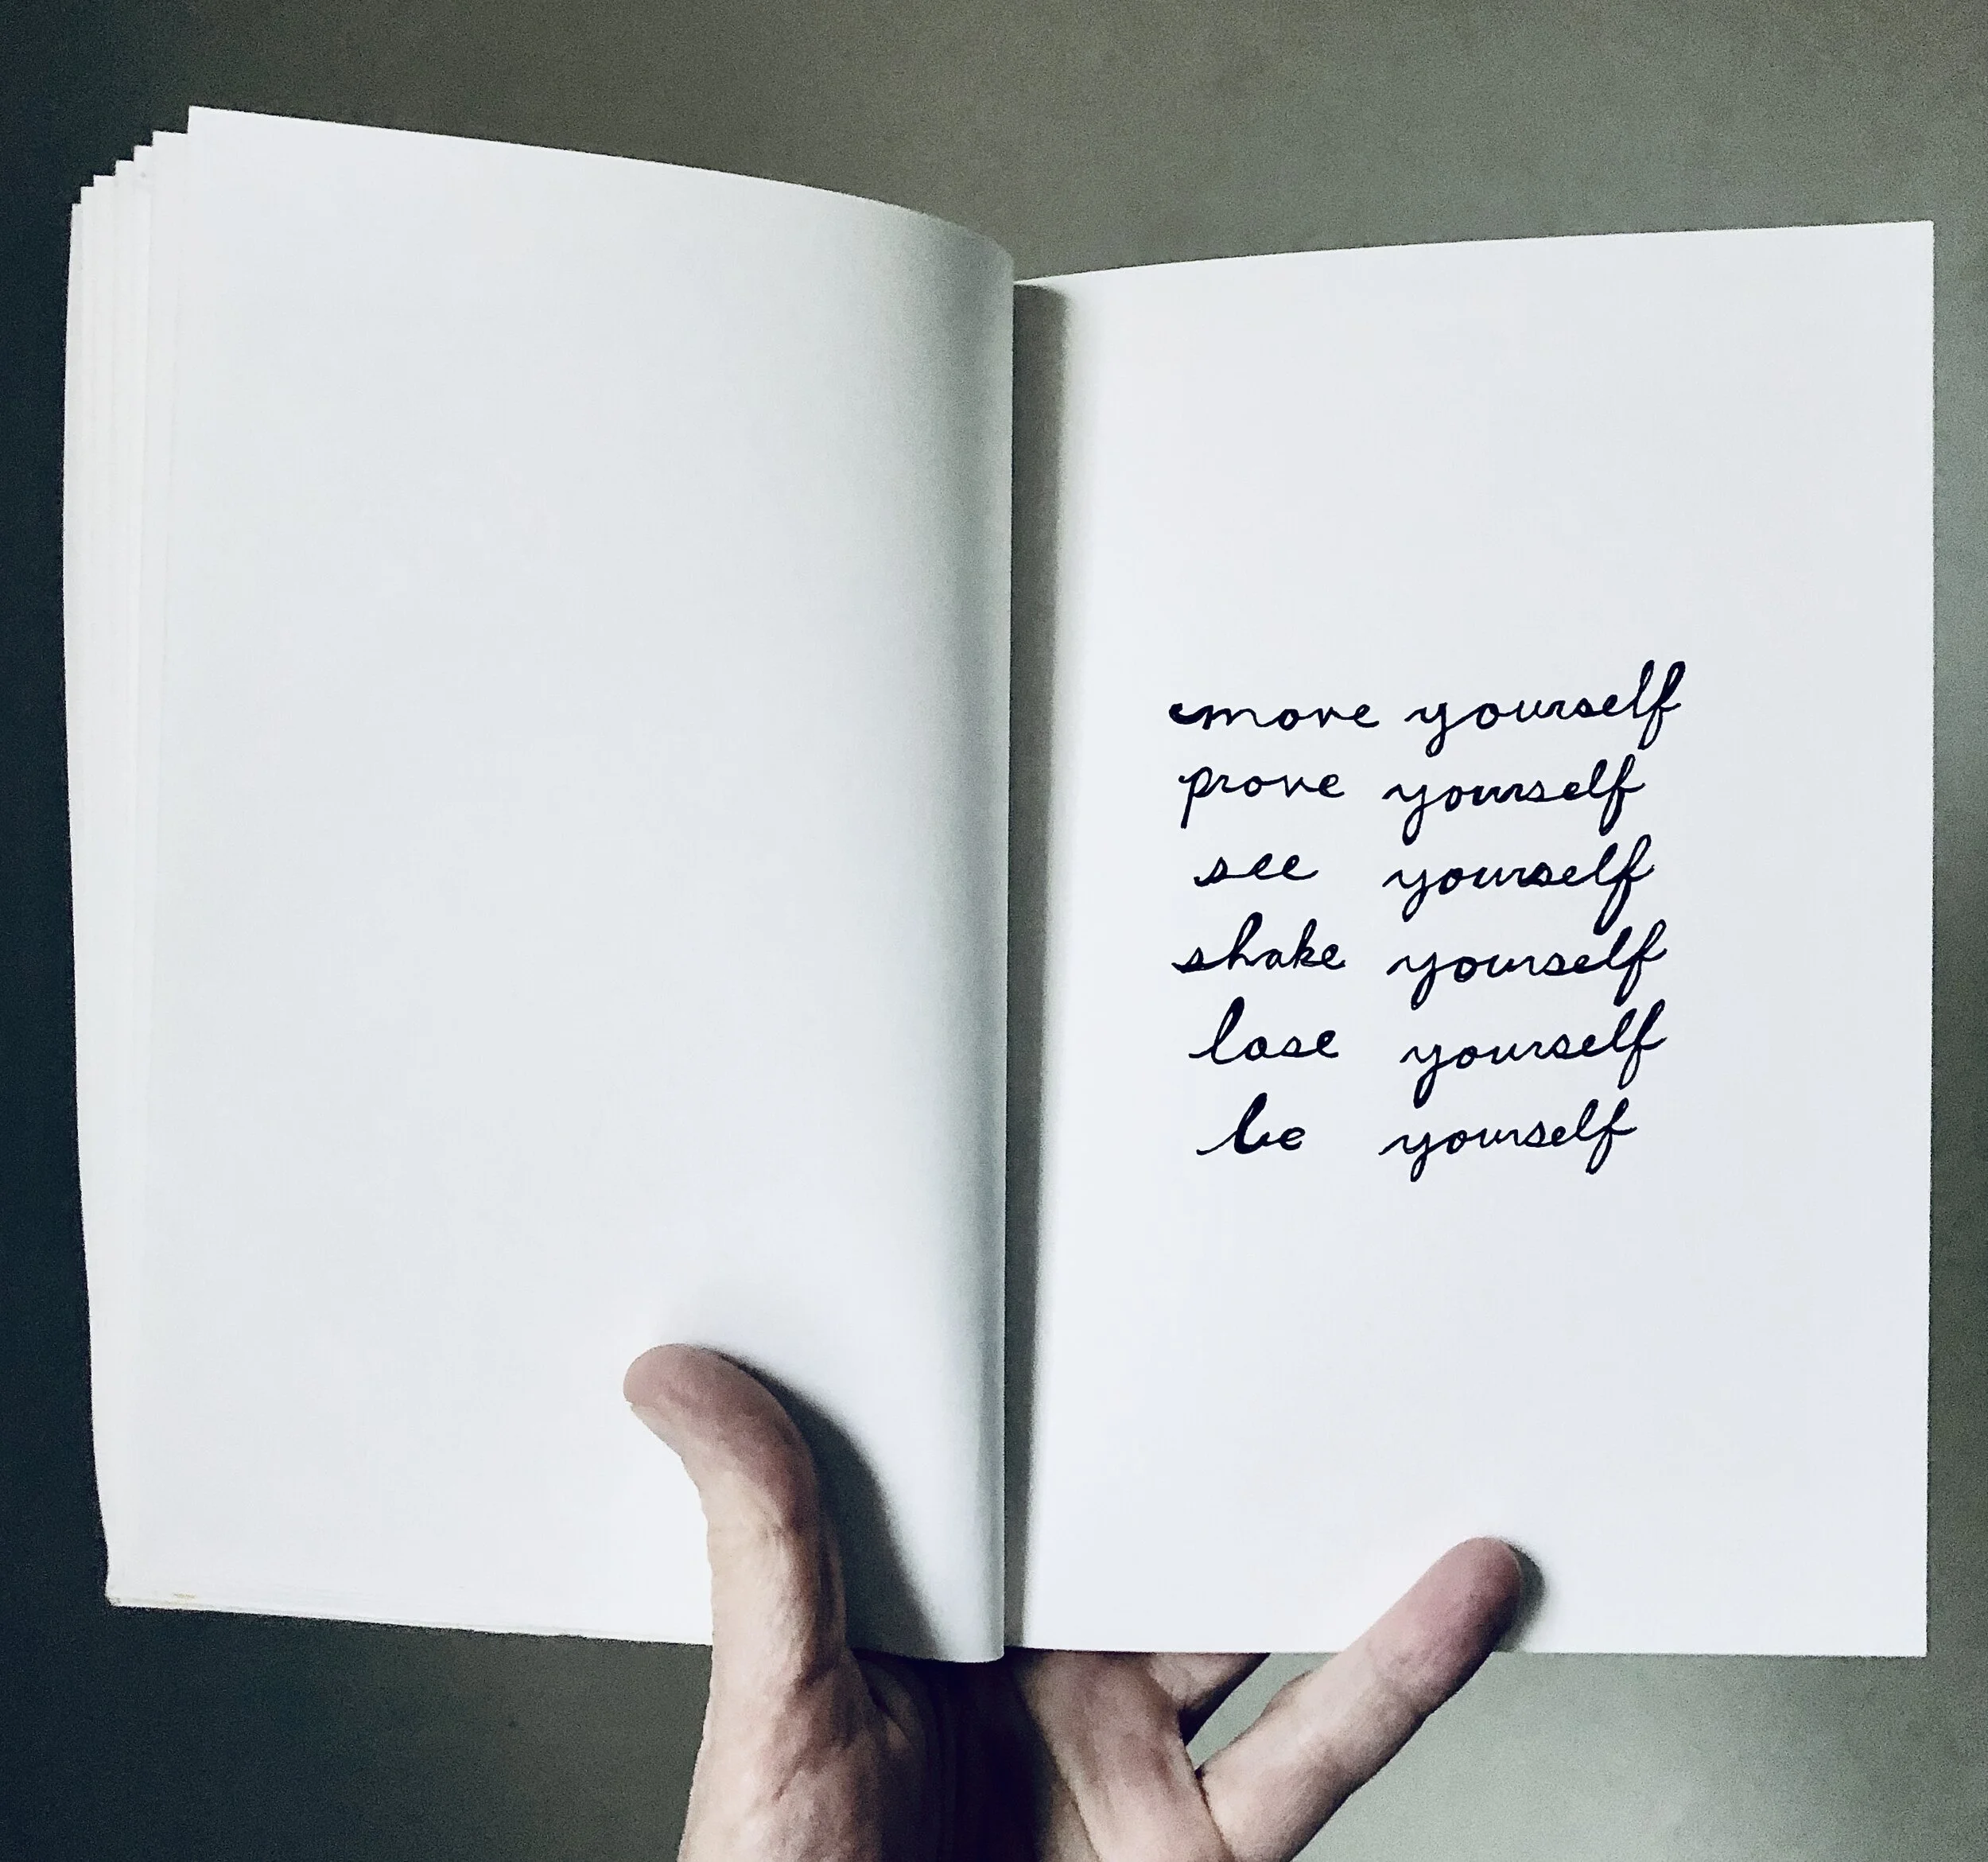 move yourself
prove yourself
see yourself
shake yourself
lose yourself
be yourself